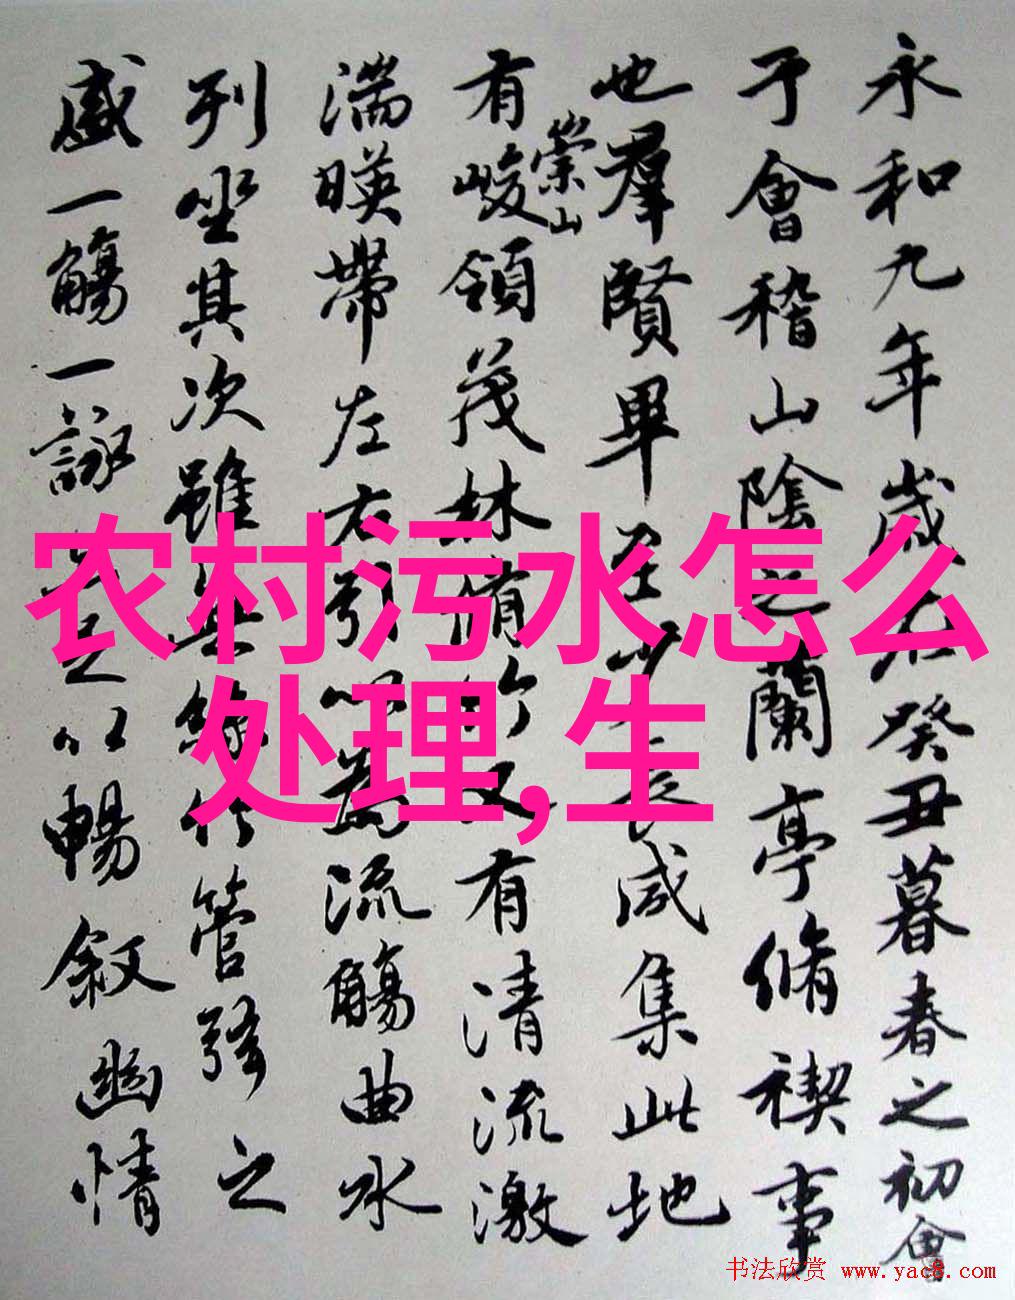 永和九年歲在癸丑暮春之初會
于會稽山陰之蘭亭脩禊事
也羣賢畢至少長咸集此地
有崇山峻領茂林脩竹又有清流激
湍暎帶左右引以為流觴曲水
列坐其次雖無絲竹管弦之
盛一觴一詠亦足以暢叙幽情
农村污水怎么
处理,生
书法欣赏 www.yac8.com